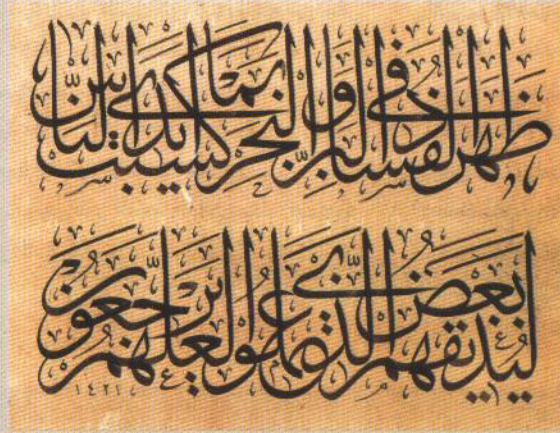 ظَهَرَ الْفَسَادُ فِي الْبَرِّ وَالْبَحْرِ بِمَا كَسَبَتْ أَيْدِي النَّاسِ
لِيُذِيقَهُمْ بَعْضَ الَّذِي عَمِلُوا لَعَلَّهُمْ يَرْجِعُونَ
١٤٢١